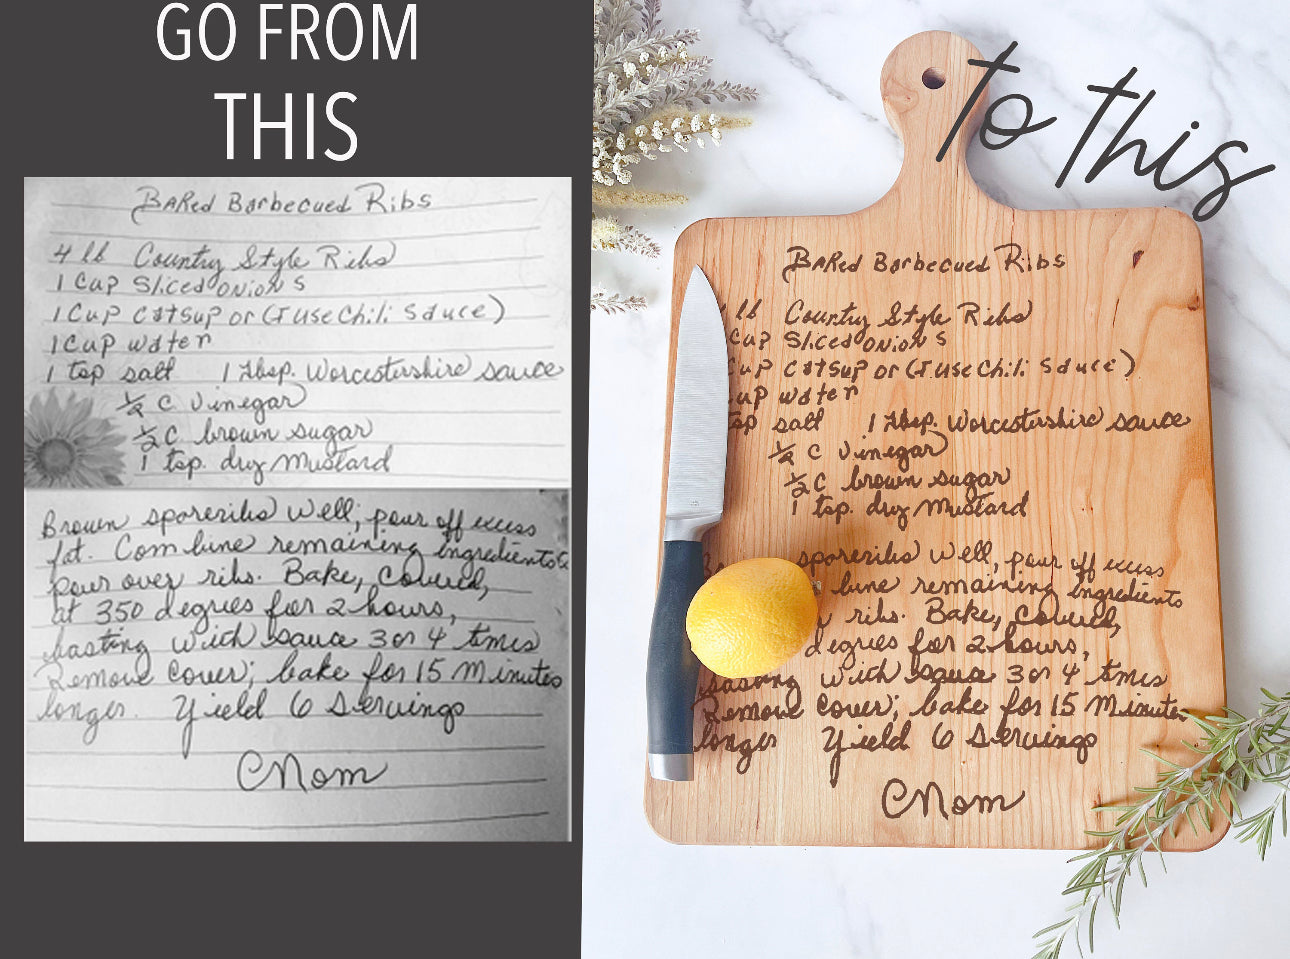 GO FROM
THIS
BaKed Barbecued Ribs
4 lb Country Style Ribs
1 Cup Sliced onions
1 Cup catsup or (I use Chili Sauce)
1 Cup water
1 tsp salt 1 Tbsp. Worcestershire sauce
1/2 C Vinegar
1/2 C brown sugar
1 tsp. dry Mustard
Brown spareribs well; pour off excess
fat. Combine remaining ingredients &
pour over ribs. Bake, covered,
at 350 degrees for 2 hours,
basting with sauce 3 or 4 times
Remove cover; bake for 15 Minutes
longer. Yield 6 Servings
Mom
to this
BaKed Barbecued Ribs
lb Country Style Ribs
Cup Sliced onions
Cup catsup or (I use Chili Sauce)
up water
tsp salt 1 Tbsp. Worcestershire sauce
1/2 C Vinegar
1/2 C brown sugar
1 tsp. dry Mustard
spareribs well, pour off excess
bine remaining ingredients
ribs. Bake, covered,
degrees for 2 hours,
basting with sauce 3 or 4 times
Remove cover; bake for 15 Minutes
longer Yield 6 Servings
Mom